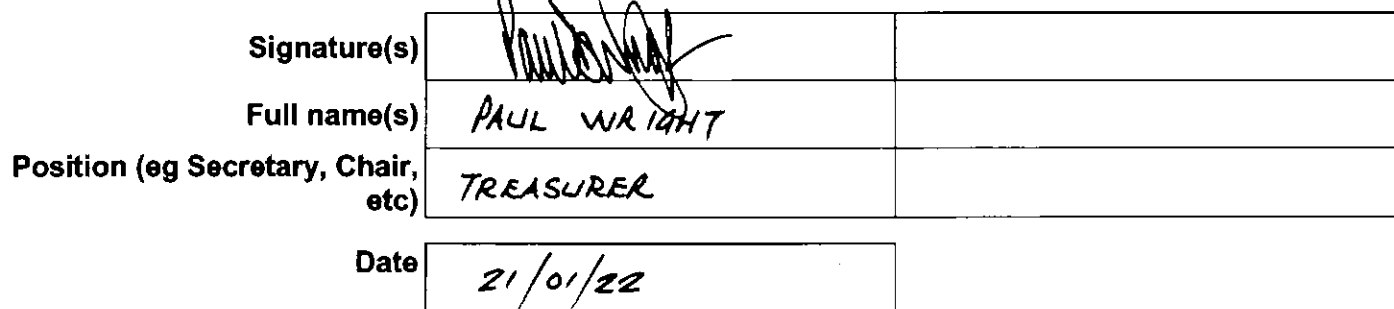 Signature(s)
Full name(s) PAUL WRIGHT
Position (eg Secretary, Chair,
etc) TREASURER
Date 21/01/22